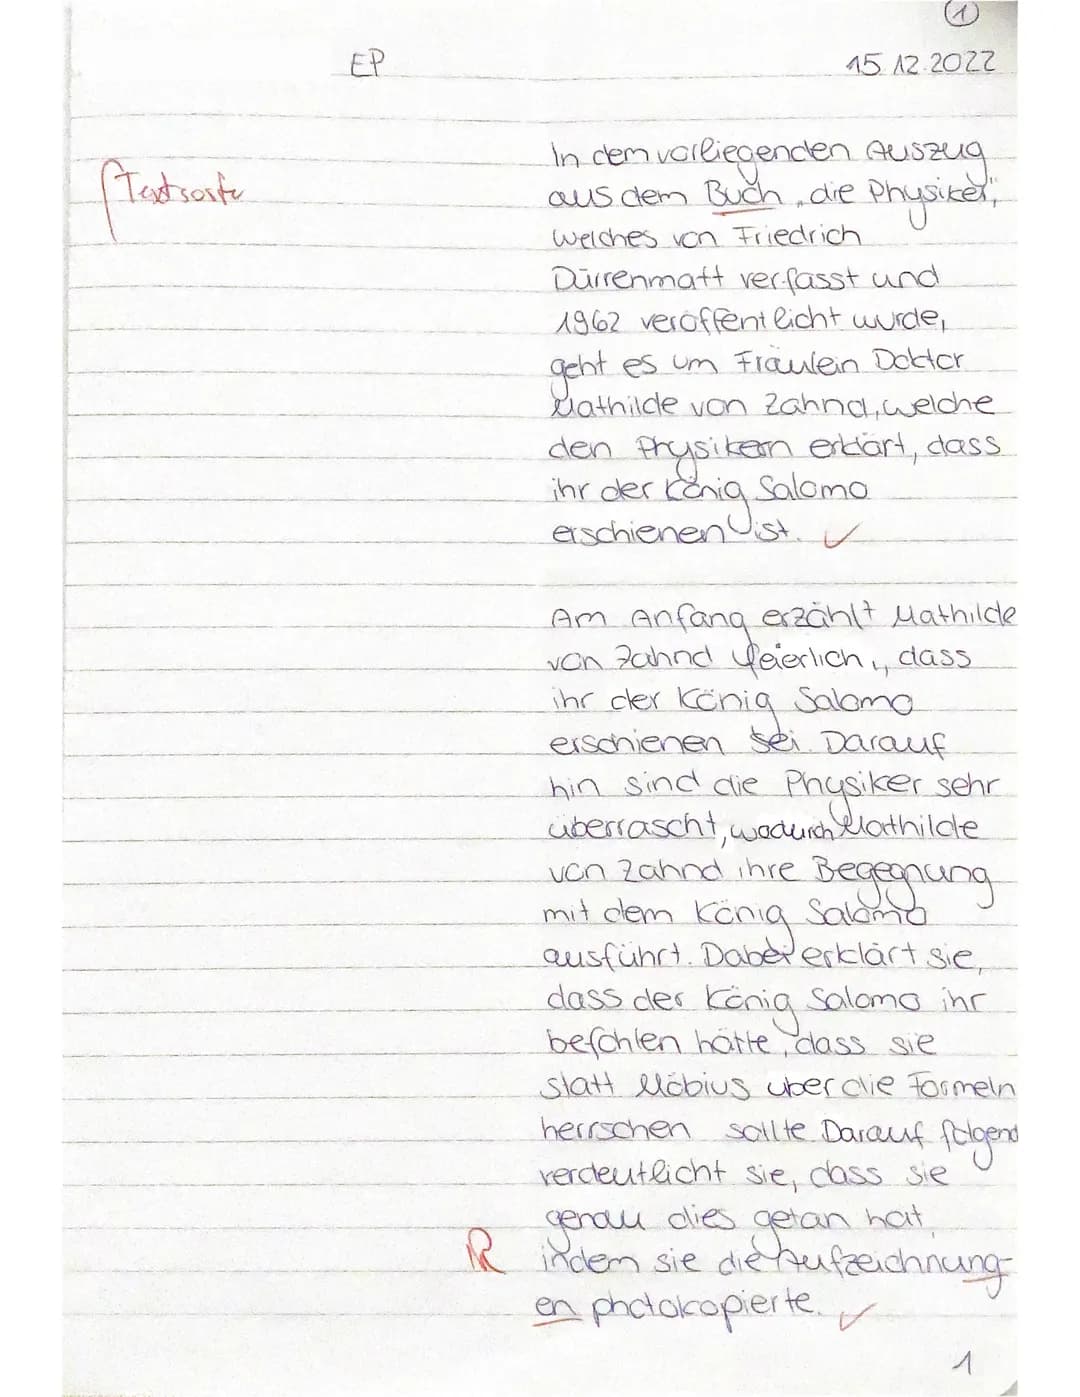 1
EP
15.12.2022
In dem vorliegenden Auszug
Textsorte
aus dem Buch „die Physiker",
welches von Friedrich
Dürrenmatt verfasst und
1962 veröffentlicht wurde,
geht es um Fräulein Doktor
Mathilde von Zahnd, welche
den Physikern erklärt, dass
ihr der König Salomo
erschienen ist. ✓
Am Anfang erzählt Mathilde
von Zahnd feierlich, dass
ihr der König Salomo
erschienen sei. Darauf
hin sind die Physiker sehr
überrascht, wodurch Mathilde
von Zahnd ihre Begegnung
mit dem König Salomo
ausführt. Dabei erklärt sie,
dass der König Salomo ihr
befohlen hätte, dass sie
statt Möbius über die Formeln
herrschen sollte Darauf folgend
verdeutlicht sie, dass sie
genau dies getan hat,
R indem sie die Aufzeichnung-
en photokopierte. ✓
1